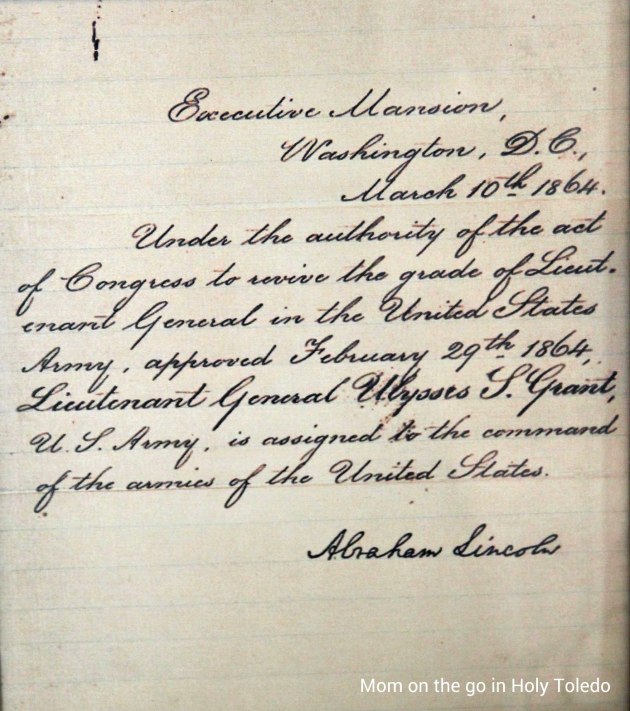 Executive Mansion,
Washington, D.C.,
March 10th 1864.
Under the authority of the act
of Congress to revive the grade of Lieut-
enant General in the United States
Army, approved February 29th 1864,
Lieutenant General Ulysses S. Grant,
U.S. Army, is assigned to the command
of the armies of the United States.
Abraham Lincoln
Mom on the go in Holy Toledo